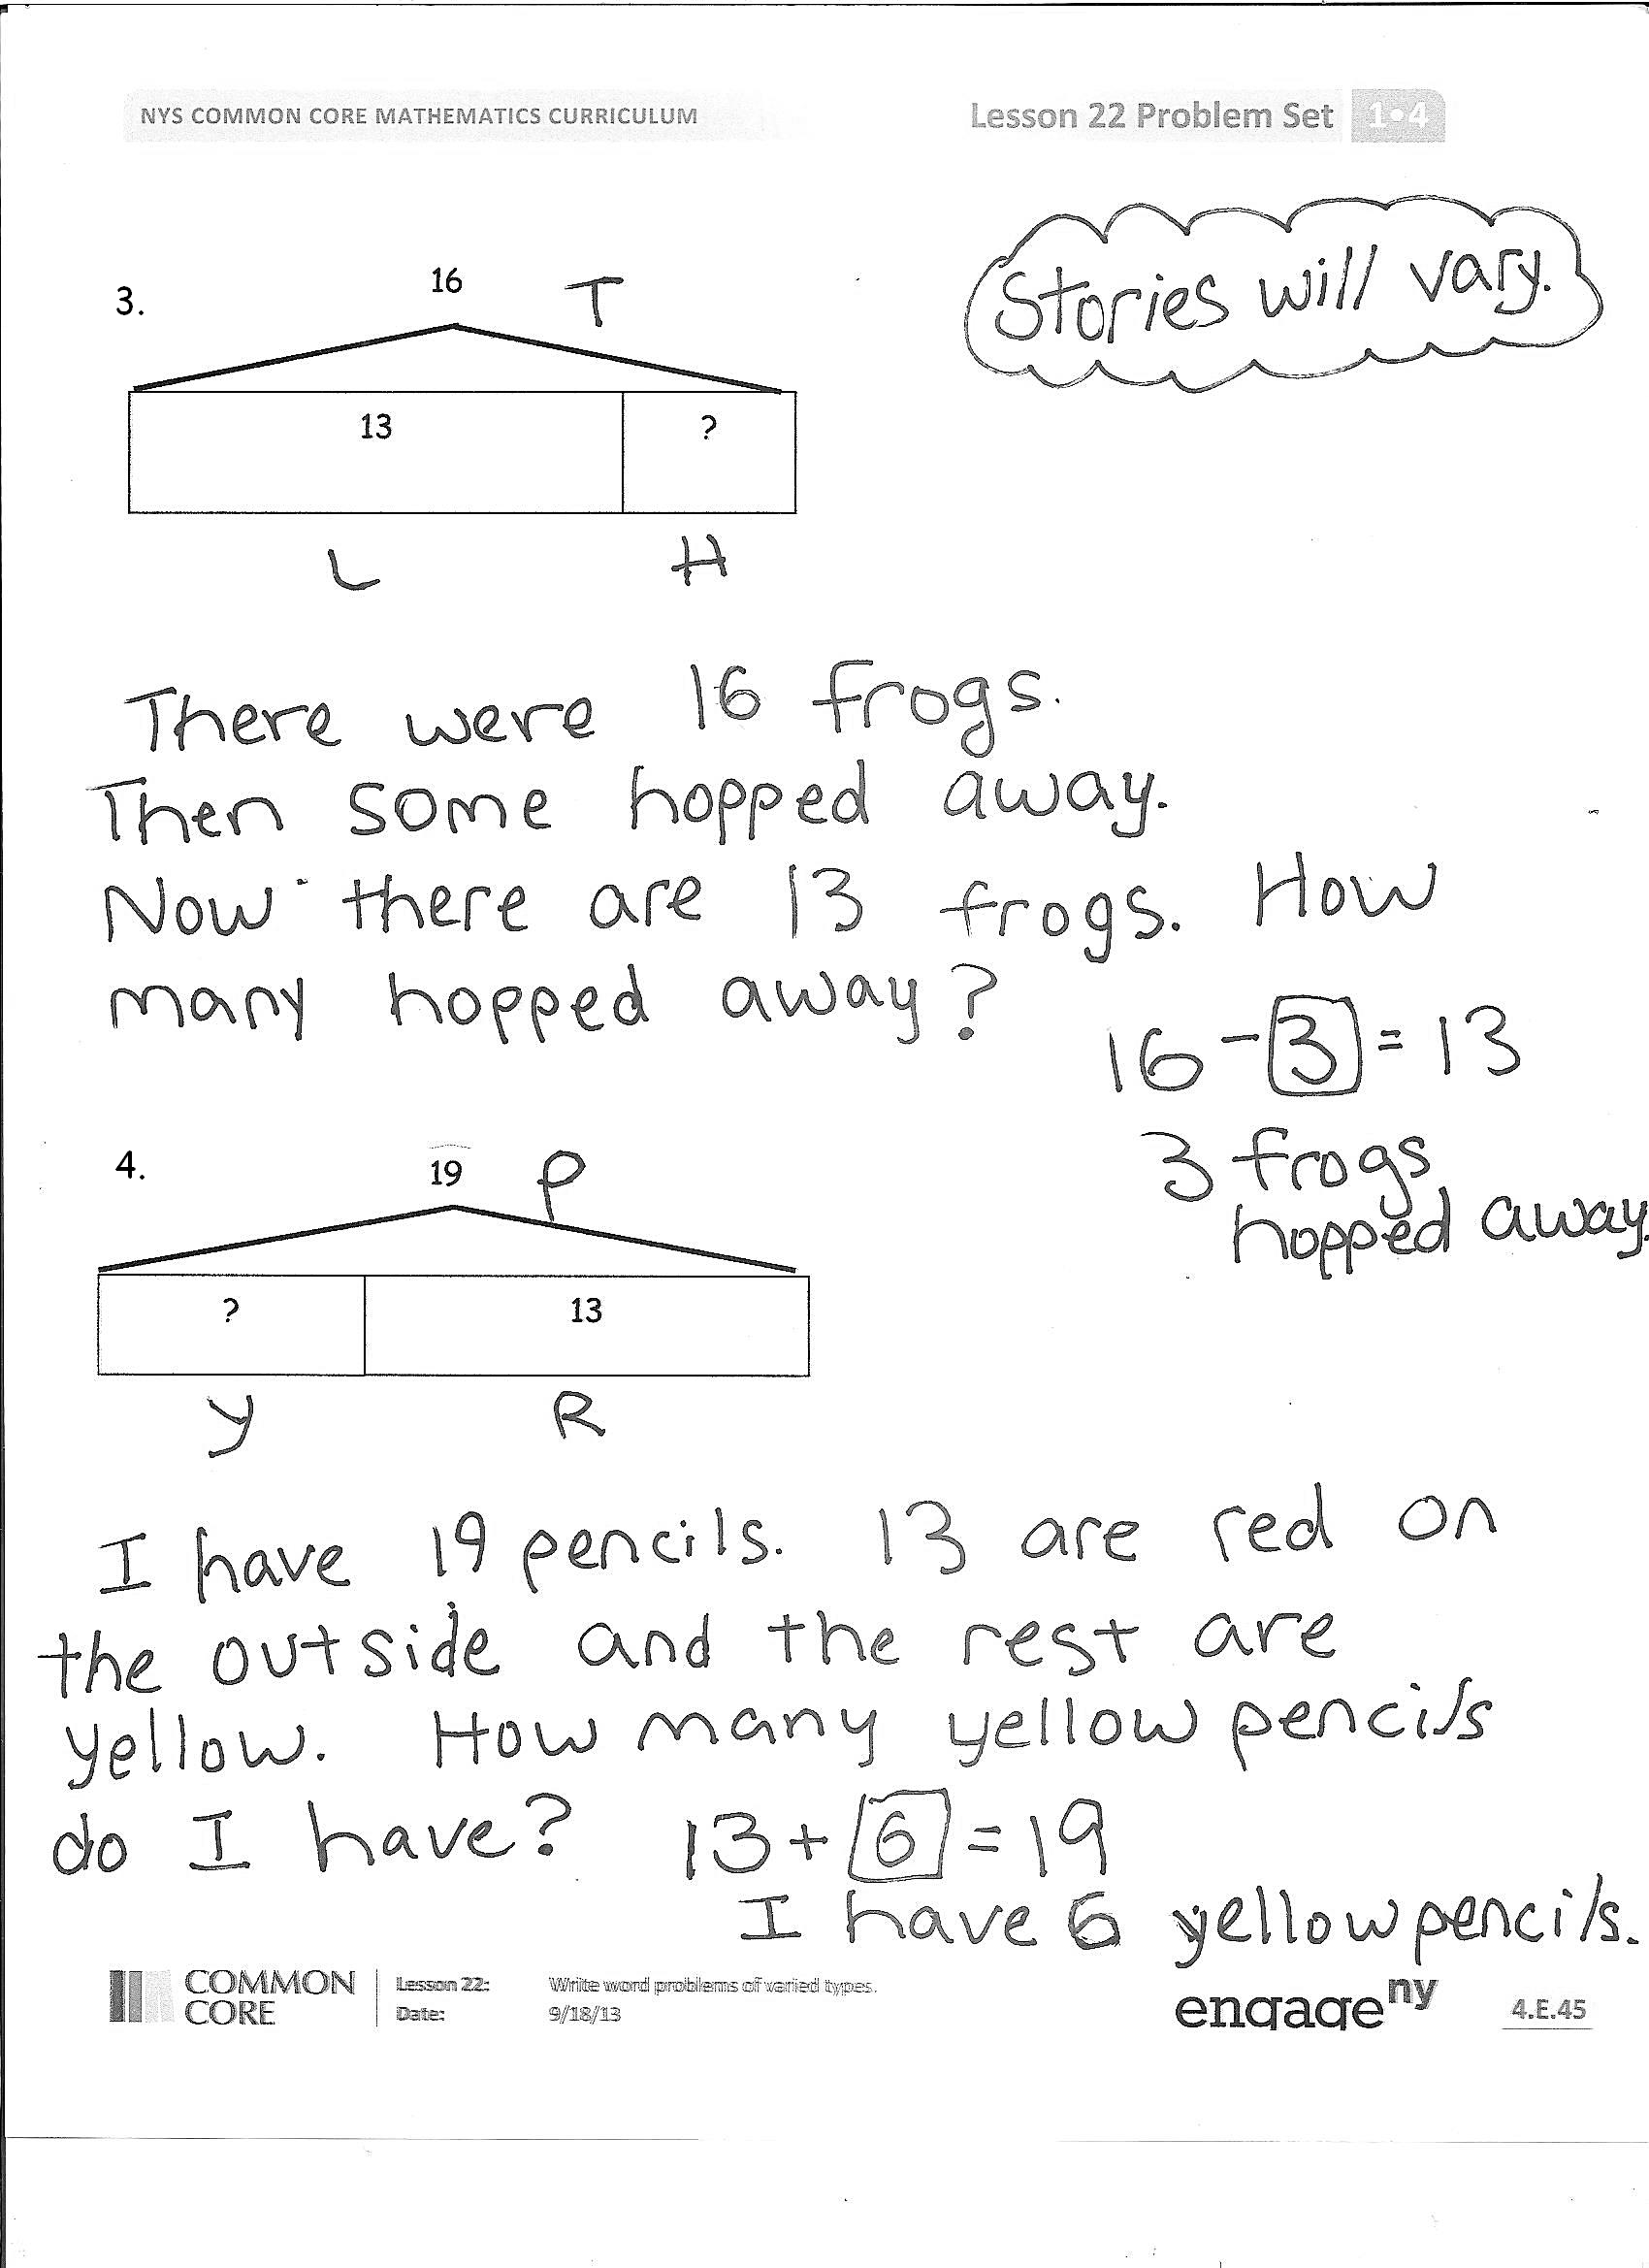 NYS COMMON CORE MATHEMATICS CURRICULUM
Lesson 22 Problem Set 1•4
Stories will vary.
3.
16 T
13 ?
L H
There were 16 frogs.
Then some hopped away.
Now there are 13 frogs. How
many hopped away?
16 - 3 = 13
3 frogs
hopped away.
4.
19 P
? 13
Y R
I have 19 pencils. 13 are red on
the outside and the rest are
yellow. How many yellow pencils
do I have? 13 + 6 = 19
I have 6 yellow pencils.
COMMON
CORE
Lesson 22: Write word problems of varied types.
Date: 9/18/13
engage ny
4.E.45